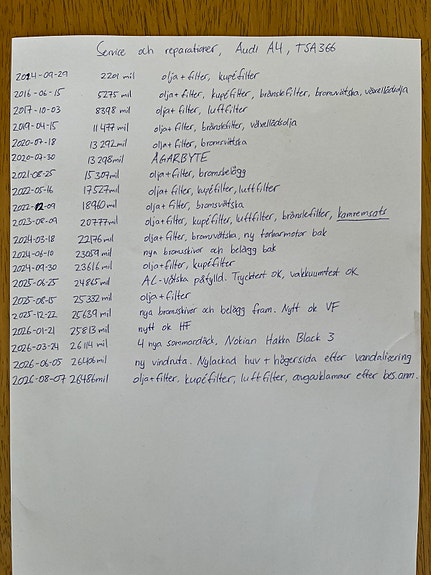 Service och reparationer, Audi A4, TSA366
2014-09-29 2201 mil olja+filter, kupéfilter
2016-06-15 5275 mil olja+filter, kupéfilter, bränslefilter, bromsvätska, växellådsolja
2017-10-03 8398 mil olja+filter, luftfilter
2019-04-15 11477 mil olja+filter, bränslefilter, växellådsolja
2020-07-18 13292 mil olja+filter, bromsvätska
2020-07-30 13298mil ÄGARBYTE
2021-08-25 15309mil olja+filter, bromsbelägg
2022-05-16 17527mil olja+filter, kupéfilter, luftfilter
2022-12-09 18960mil olja+filter, bromsvätska
2023-08-09 20777mil olja+filter, kupéfilter, luftfilter, bränslefilter, kamremsats
2024-03-18 22176mil olja+filter, bromsvätska, ny torkarmotor bak
2024-06-10 23059 mil nya bromsskivor och belägg bak
2024-09-30 23616 mil olja+filter, kupéfilter
2025-06-25 24865mil AC-vätska påfylld. Trycktest OK, vakuumtest OK
2025-08-15 25332 mil olja+filter
2025-12-22 25639 mil nya bromsskivor och belägg fram. Nytt ok VF
2026-01-21 25813 mil nytt ok HF
2026-03-24 26114 mil 4 nya sommardäck, Nokian Hakka Black 3
2026-06-05 26406mil ny vindruta. Nylackad huv + högersida efter vandalisering
2026-08-07 26486mil olja+filter, kupéfilter, luftfilter, avgasklammer efter bes.anm.